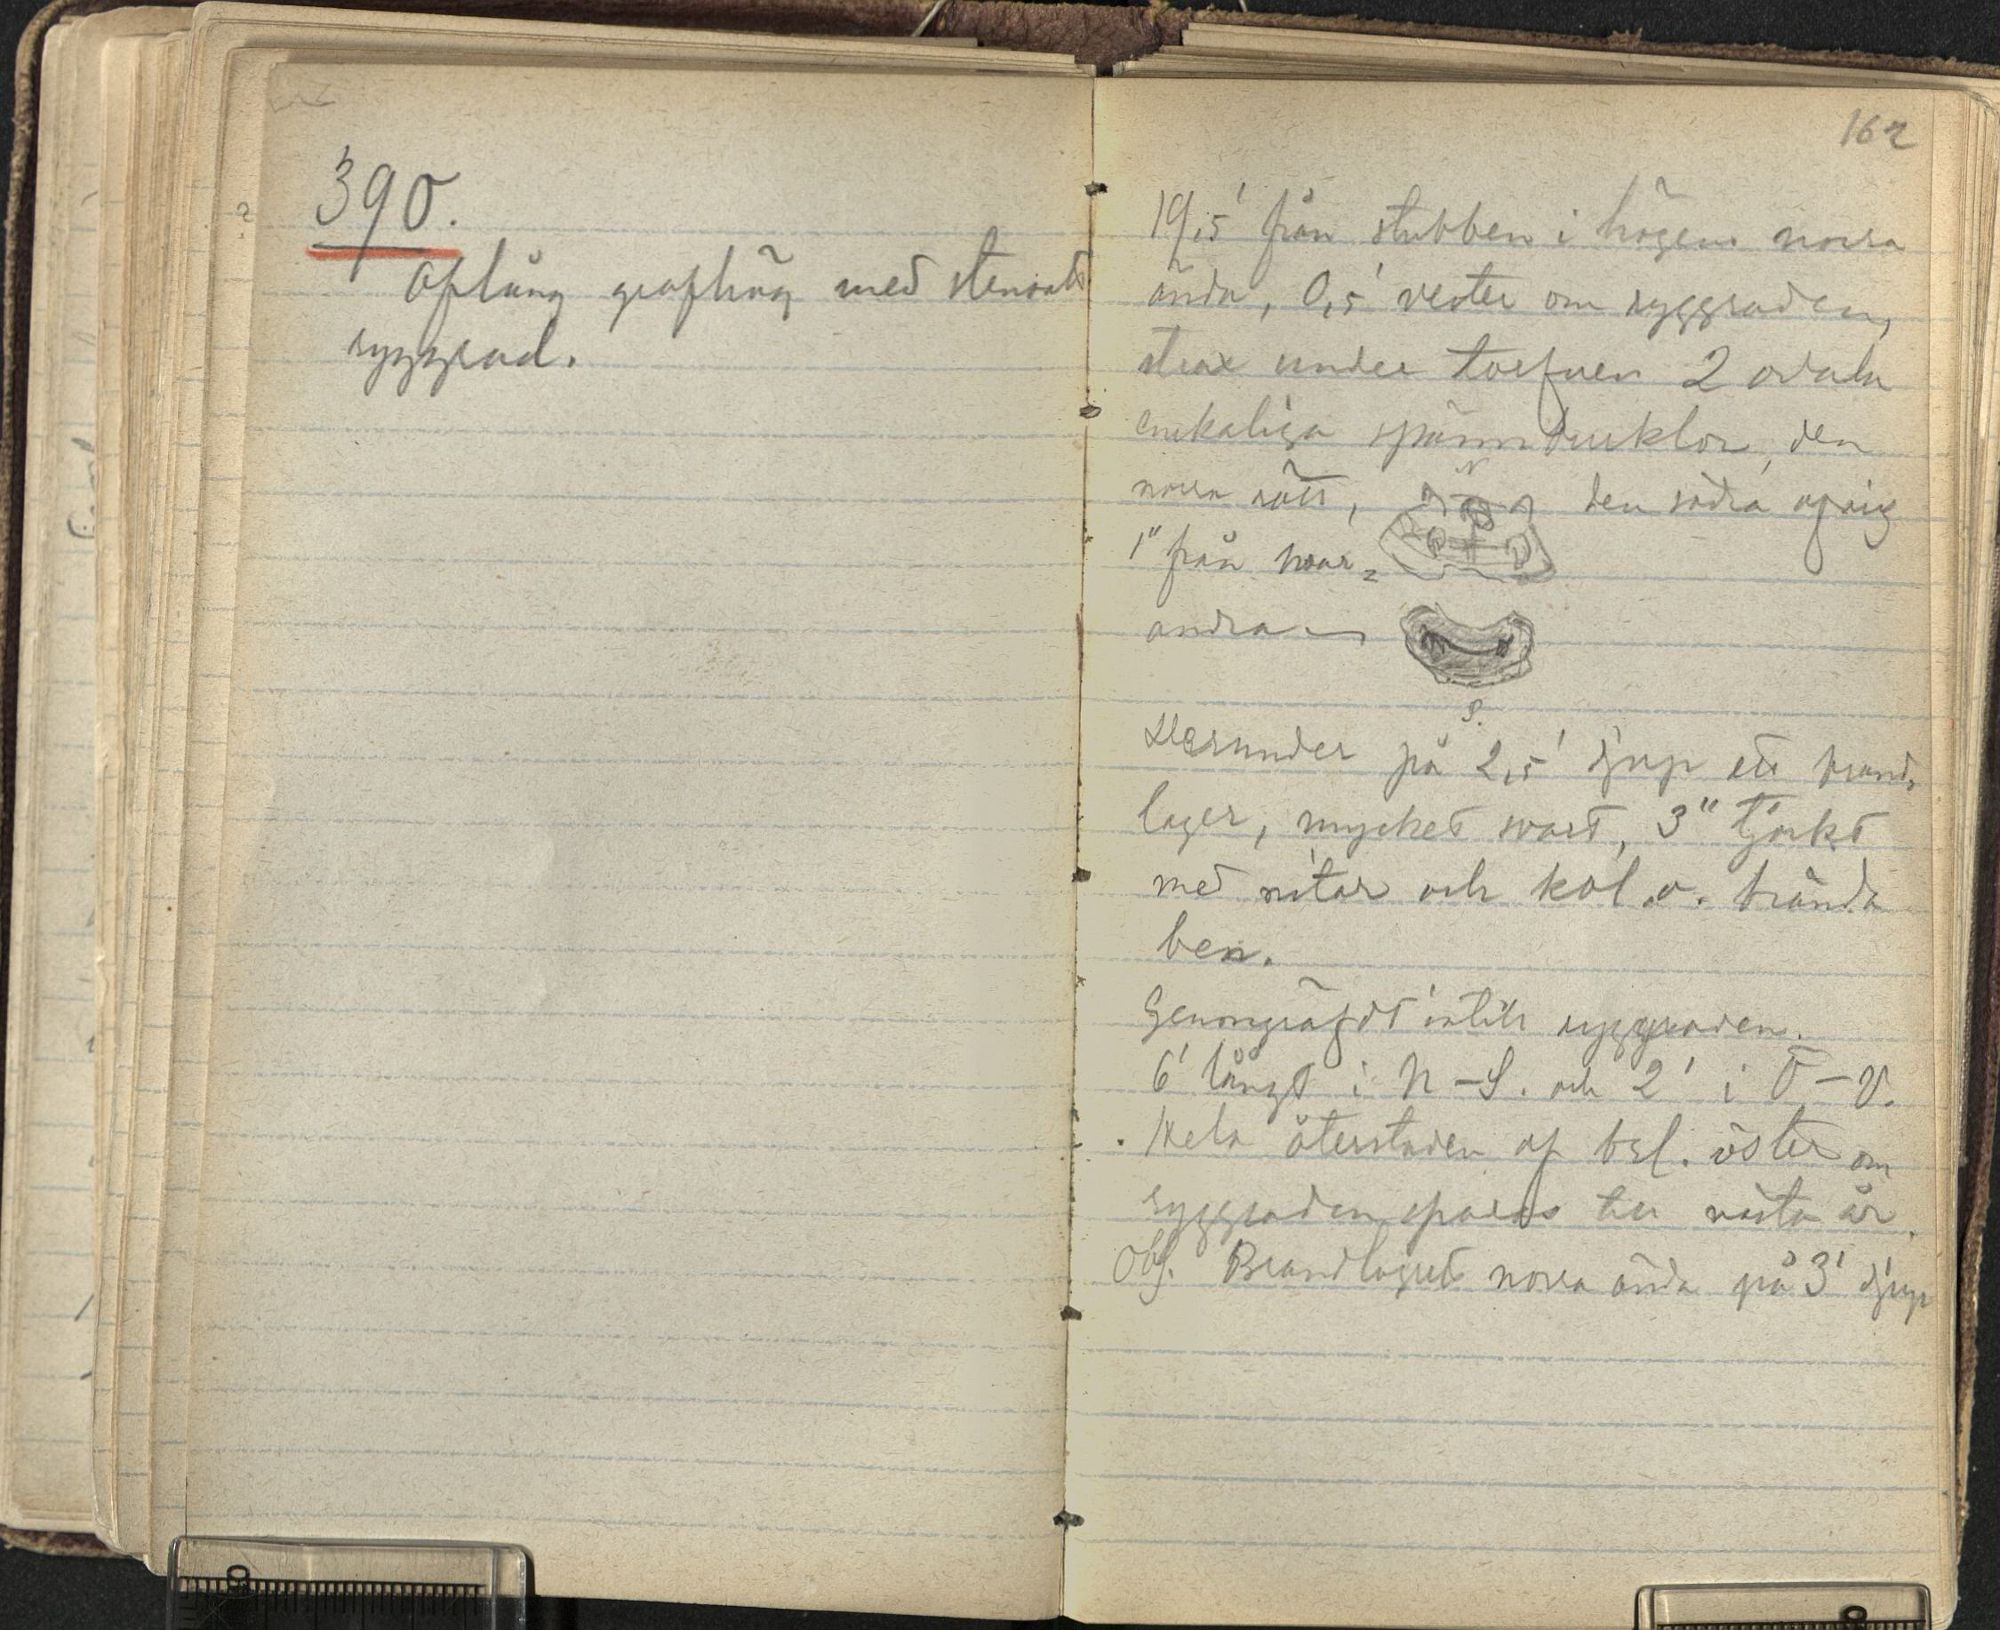 390.
Aflång grafhög med stensatt
ryggrad.
162
19,5' från stubben i högens norra
ända, 0,5' vester om ryggraden,
strax under torfven 2 ovala
enkaliga spännbucklor, den
norra rätt, den södra afvig
1" från hvar-
andra
N
S.
Derunder på 2,5' djup ett brand-
lager, mycket svart, 3" tjockt
med nitar och kol o. brända
ben.
Genomgräfdt intill ryggraden.
6' långt i N-S. och 2' i Ö-V.
Hela återstoden af brl. öster om
ryggraden sparas till nästa år.
Obs. Brandlagrets norra ända på 3' djup